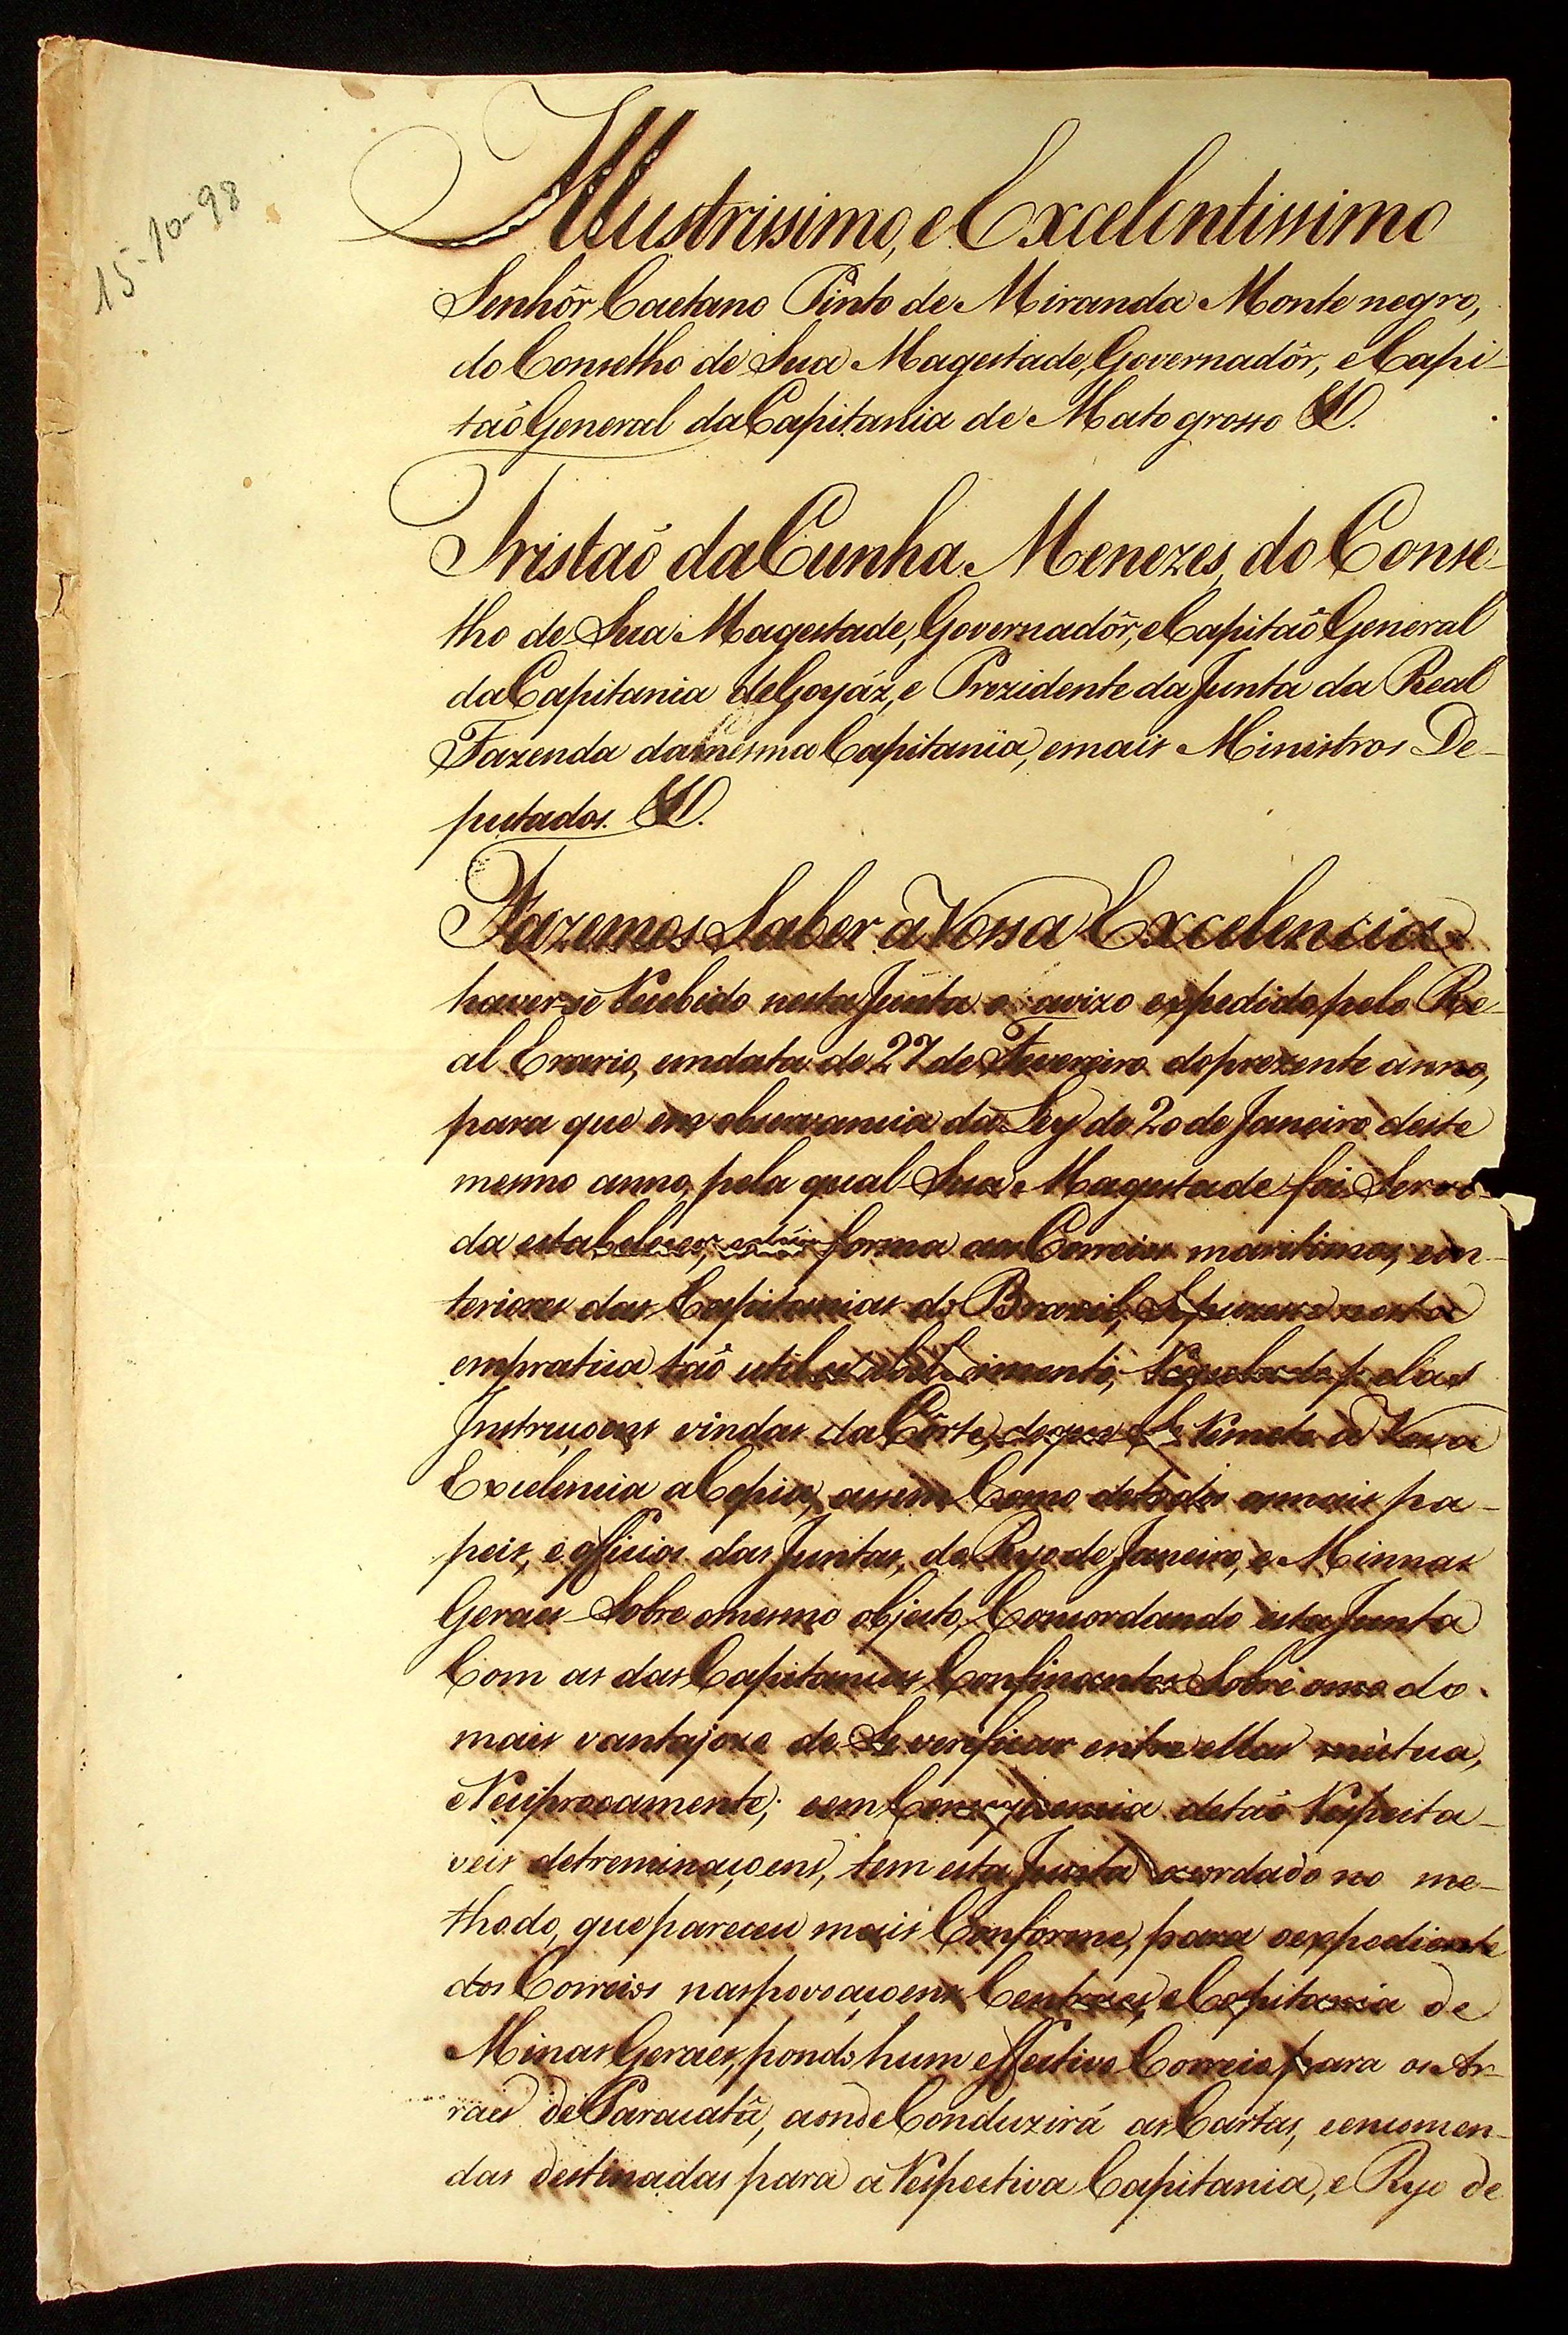 15-10-98
Illustrissimo, e Excelentissimo
Senhôr Caetano Pinto de Miranda Monte negro,
do Conselho de Sua Magestade, Governadôr, e Capi-
taõ General da Capitania de Mato grosso &.
Tristaõ da Cunha Menezes, do Conse-
lho de Sua Magestade, Governadôr, e Capitaõ General
da Capitania de Goyáz, e Prezidente da Junta da Real
Fazenda da mesma Capitania, e mais Ministros De-
putados. &.
Fazemos Saber a Vossa Excelencia
haver-se Recebido nesta Junta o avizo expedido pelo Re-
al Erario, em data de 27 de Fevereiro do prezente anno,
para que em observancia da Ley de 20 de Janeiro deste
mesmo anno, pela qual Sua Magestade foi Servi-
da estabelecer, forma aos Correios maritimos, e in-
teriores das Capitanias do Brazil, Se puzesse nesta
em pratica taõ util estabelecimento, Regulado pelas
Instruçoens vindas da Côrte, de que Se Remete a Vossa
Excelencia a Copia, assim Como de todos os mais pa-
peis, e officios das Juntas, do Ryo de Janeiro, e Minnas
Geraes Sobre o mesmo objecto, Concordando esta Junta
Com as das Capitanias Confinantes Sobre o modo
mais vantajozo de Se verificar entre ellas mùtua,
e Reciprocamente; e em Consequencia de taõ Respeita-
veis detreminaçoens, tem esta Junta acordado no me-
thodo, que pareceu mais Conforme, para o expediente
dos Correios nas povoaçoens Centraes, e Capitania de
Minas Geraes, pondo hum effectivo Correio para os Ar-
raes de Paracatû, aonde Conduzirá as Cartas, e encomen-
das destinadas para a Respectiva Capitania, e Ryo de